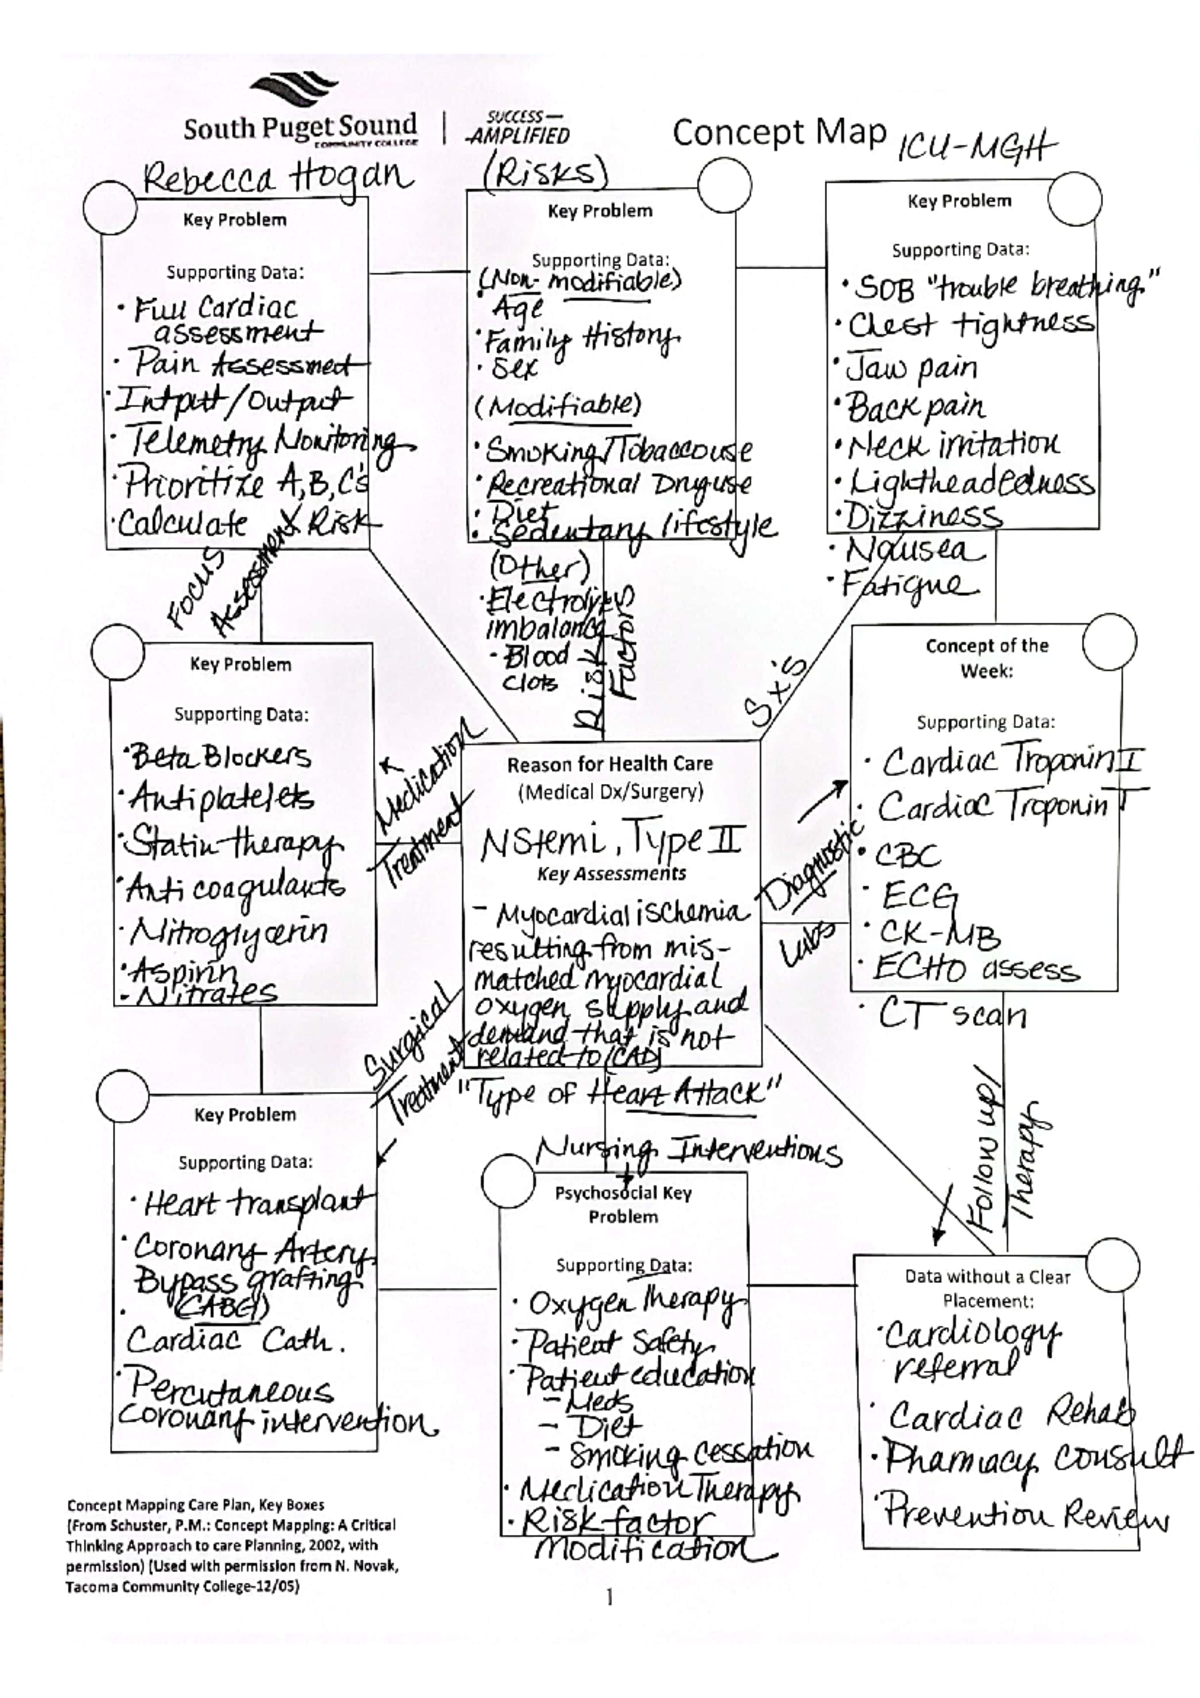 South Puget Sound
COMMUNITY COLLEGE
SUCCESS—
AMPLIFIED
Concept Map
ICU-MGH
Rebecca Hogan
(Risks)
Key Problem
Supporting Data:
• Full Cardiac
assessment
• Pain Assessmet
• Intputt/Output
• Telemetry Monitoring
• Prioritize A,B,C's
• Calculate Risk
Key Problem
Supporting Data:
(Non-modifiable)
• Age
• Family History
• Sex
(Modifiable)
• Smoking/Tobacco use
• Recreational Drug use
• Diet
• Sedentary lifestyle
(Other)
• Electrolyte
imbalance
• Blood
clots
Key Problem
Supporting Data:
• SOB "trouble breathing"
• Chest tightness
• Jaw pain
• Back pain
• Neck irritation
• Lightheadedness
• Dizziness
• Nausea
• Fatigue
Focus
Assessment
Risk
Factors
Sx's
Key Problem
Supporting Data:
• Beta Blockers
• Antiplatelets
• Statin therapy
• Anti coagulants
• Nitroglycerin
• Aspirin
• Nitrates
Medication
Treatment
Reason for Health Care
(Medical Dx/Surgery)
NStemi, Type II
Key Assessments
- Myocardial ischemia
resulting from mis-
matched myocardial
oxygen supply and
demand that is not
related to (CAD)
"Type of Heart Attack"
Diagnostic
Labs
Concept of the
Week:
Supporting Data:
• Cardiac Troponin I
• Cardiac Troponin T
• CBC
• ECG
• CK-MB
• ECHO assess
• CT scan
Surgical
Treatment
Nursing Interventions
Follow up/
Therapy
Key Problem
Supporting Data:
• Heart transplant
• Coronary Artery
Bypass grafting
(CABG)
• Cardiac Cath.
• Percutaneous
coronary intervention
Psychosocial Key
Problem
Supporting Data:
• Oxygen therapy
• Patient Safety
• Patient education
- Meds
- Diet
- Smoking cessation
• Medication Therapy
• Risk factor
modification
Data without a Clear
Placement:
• Cardiology
referral
• Cardiac Rehab
• Pharmacy consult
• Prevention Review
Concept Mapping Care Plan, Key Boxes
(From Schuster, P.M.: Concept Mapping: A Critical
Thinking Approach to care Planning, 2002, with
permission) (Used with permission from N. Novak,
Tacoma Community College-12/05)
1